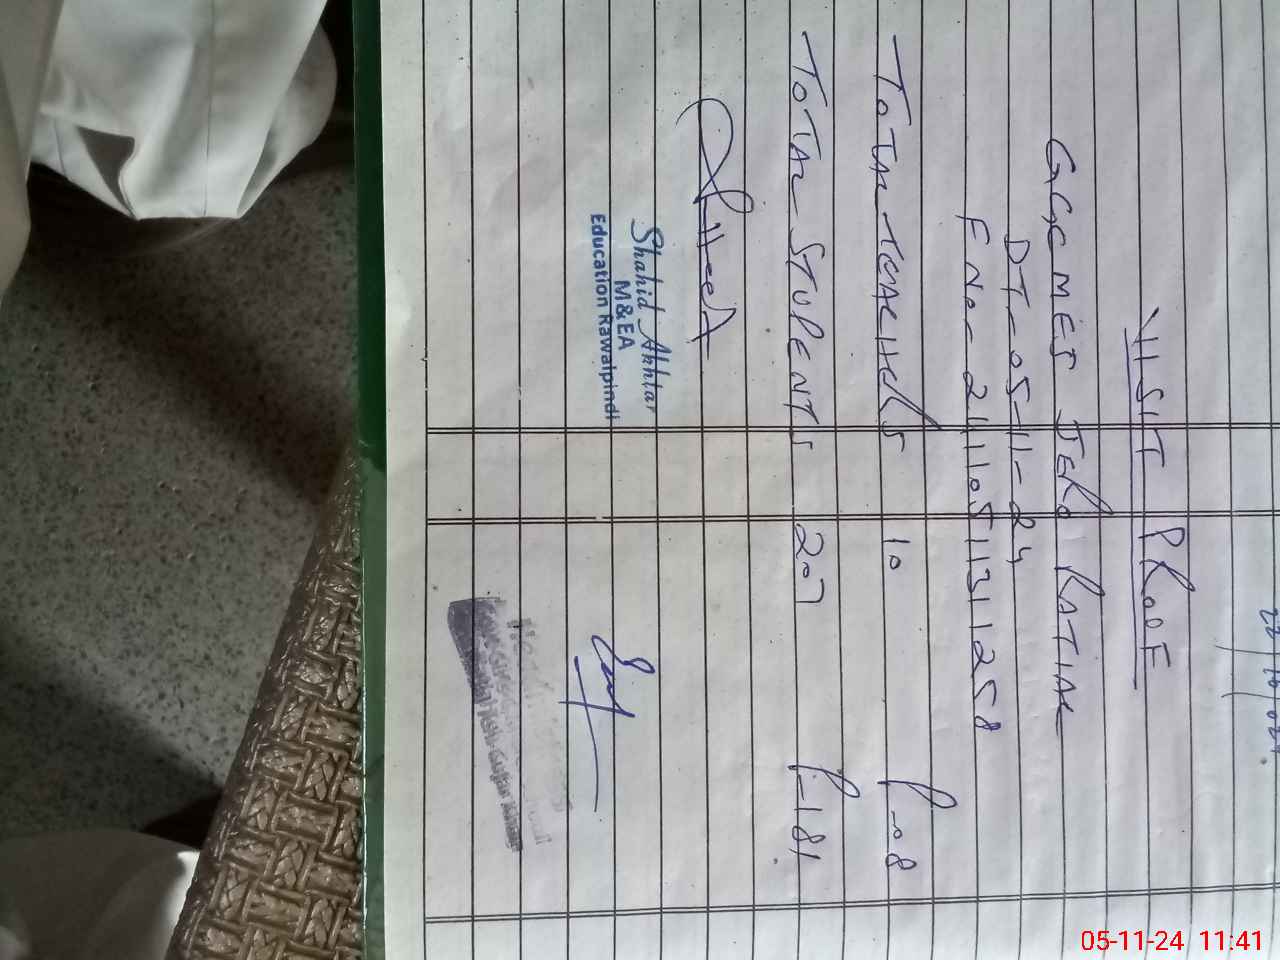 22/10/024.
VISIT PROOF
GGCMES JERO RATIAL
DT-05-11-24
F No- 24110511311258
TOTAL TEACHERS 10 P-08
TOTAL STUDENTS 207 P-181
Shahid Akhtar
M & EA
Education Rawalpindi
Gujar Khan
05-11-24 11:41